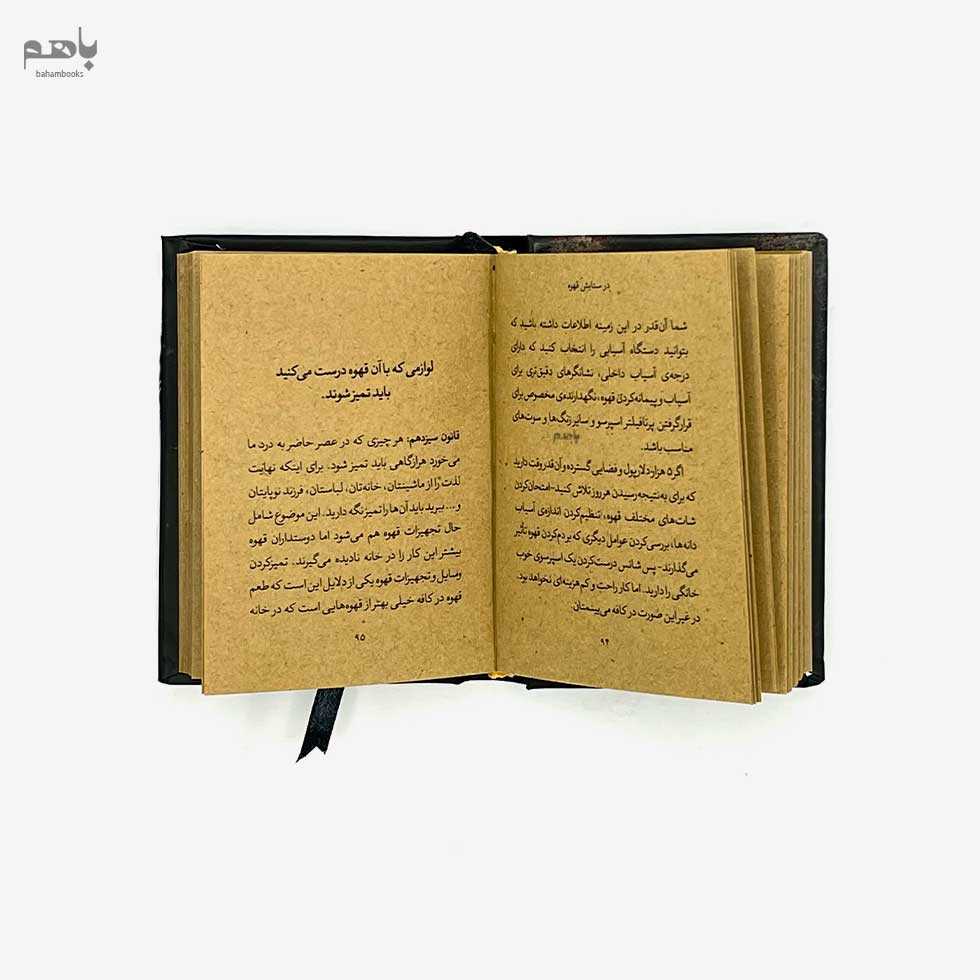 باهم
bahambooks
در ستایش قهوه
شما آن‌قدر در این زمینه اطلاعات داشته باشید که
بتوانید دستگاه آسیابی را انتخاب کنید که دارای
درجه‌ی آسیاب داخلی، نشانگرهای دقیق‌تری برای
آسیاب و پیمانه‌کردن قهوه، نگهدارنده‌ی مخصوص برای
قرارگرفتن پرتافیلتر اسپرسو و سایر زنگ‌ها و سوت‌های
مناسب باشد.
باهم
اگر ۵ هزار دلار پول و فضایی گسترده و آن‌قدر وقت دارید
که برای به‌نتیجه‌رسیدن هر روز تلاش کنید-امتحان‌کردن
شات‌های مختلف قهوه، تنظیم‌کردن اندازه‌ی آسیاب
دانه‌ها، بررسی‌کردن عوامل دیگری که بر دم‌کردن قهوه تأثیر
می‌گذارند- پس شانس درست‌کردن یک اسپرسوی خوب
خانگی را دارید. اما کار راحت و کم‌هزینه‌ای نخواهد بود.
در غیر این صورت در کافه می‌بینمتان.
۹۴
لوازمی که با آن قهوه درست می‌کنید
باید تمیز شوند.
قانون سیزدهم: هر چیزی که در عصر حاضر به درد ما
می‌خورد هرازگاهی باید تمیز شود. برای اینکه نهایت
لذت را از ماشینتان، خانه‌تان، لباستان، فرزند نوپایتان
و... ببرید باید آن‌ها را تمیز نگه دارید. این موضوع شامل
حال تجهیزات قهوه هم می‌شود اما دوستداران قهوه
بیشتر این کار را در خانه نادیده می‌گیرند. تمیزکردن
وسایل و تجهیزات قهوه یکی از دلایل این است که طعم
قهوه در کافه خیلی بهتر از قهوه‌هایی است که در خانه
۹۵